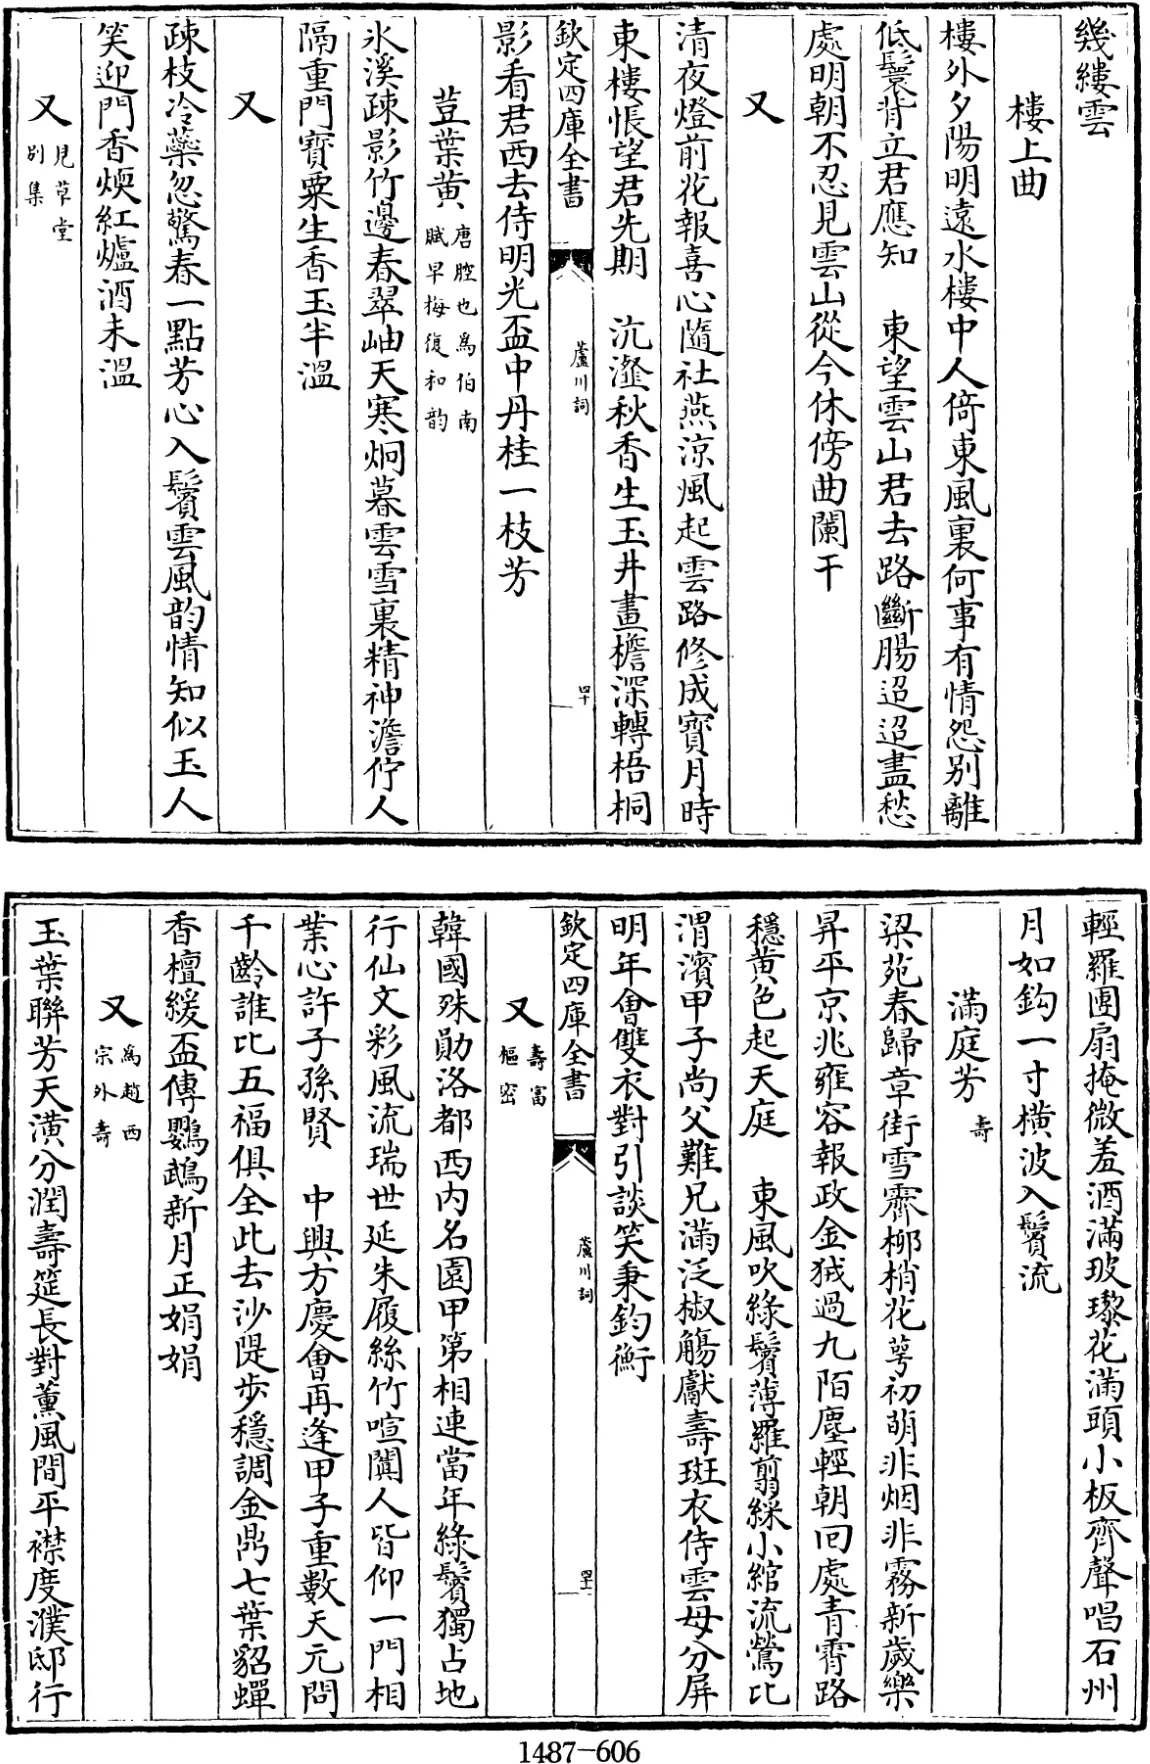 幾縷雲
樓上曲
樓外夕陽明遠水樓中人倚東風裏何事有情怨别離
低鬟背立君應知　東望雲山君去路斷腸迢迢盡愁
處明朝不忍見雲山從今休傍曲闌干
又
清夜燈前花報喜心隨社燕涼風起雲路修成寳月時
東樓悵望君先期　沆瀣秋香生玉井畫檐深轉梧桐
欽定四庫全書
蘆川詞
四十
影看君西去侍明光盃中丹桂一枝芳
荳葉黄唐腔也爲伯南賦早梅復和韵
氷溪疎影竹邊春翠岫天寒炯暮雲雪裏精神澹佇人
隔重門寳粟生香玉半温
又
疎枝冷蘂忽驚春一點芳心入鬢雲風韵情知似玉人
笑迎門香煗紅爐酒未温
又見草堂别集
輕羅團扇掩微羞酒滿玻瓈花滿頭小板齊聲唱石州
月如鈎一寸横波入鬢流
滿庭芳壽
梁苑春歸章街雪霽柳梢花萼初萌非烟非霧新歲樂
昇平京兆雍容報政金狨過九陌塵輕朝回處青霄路
穩黄色起天庭　東風吹綠鬢薄羅翦綵小綰流鶯比
渭濱甲子尚父難兄滿泛椒觴獻壽斑衣侍雲母分屏
明年會雙衣對引談笑秉鈞衡
欽定四庫全書
蘆川詞
四十一
又壽富樞密
韓國殊勛洛都西内名園甲第相連當年綠鬢獨占地
行仙文彩風流瑞世延朱履絲竹喧闐人皆仰一門相
業心許子孫賢　中興方慶會再逢甲子重數天元問
千齡誰比五福俱全此去沙隄步穩調金鼎七葉貂蟬
香檀緩盃傳鸚鵡新月正娟娟
又爲趙西宗外壽
玉葉聯芳天潢分潤壽筵長對薰風間平襟度濮邸行
1487-606